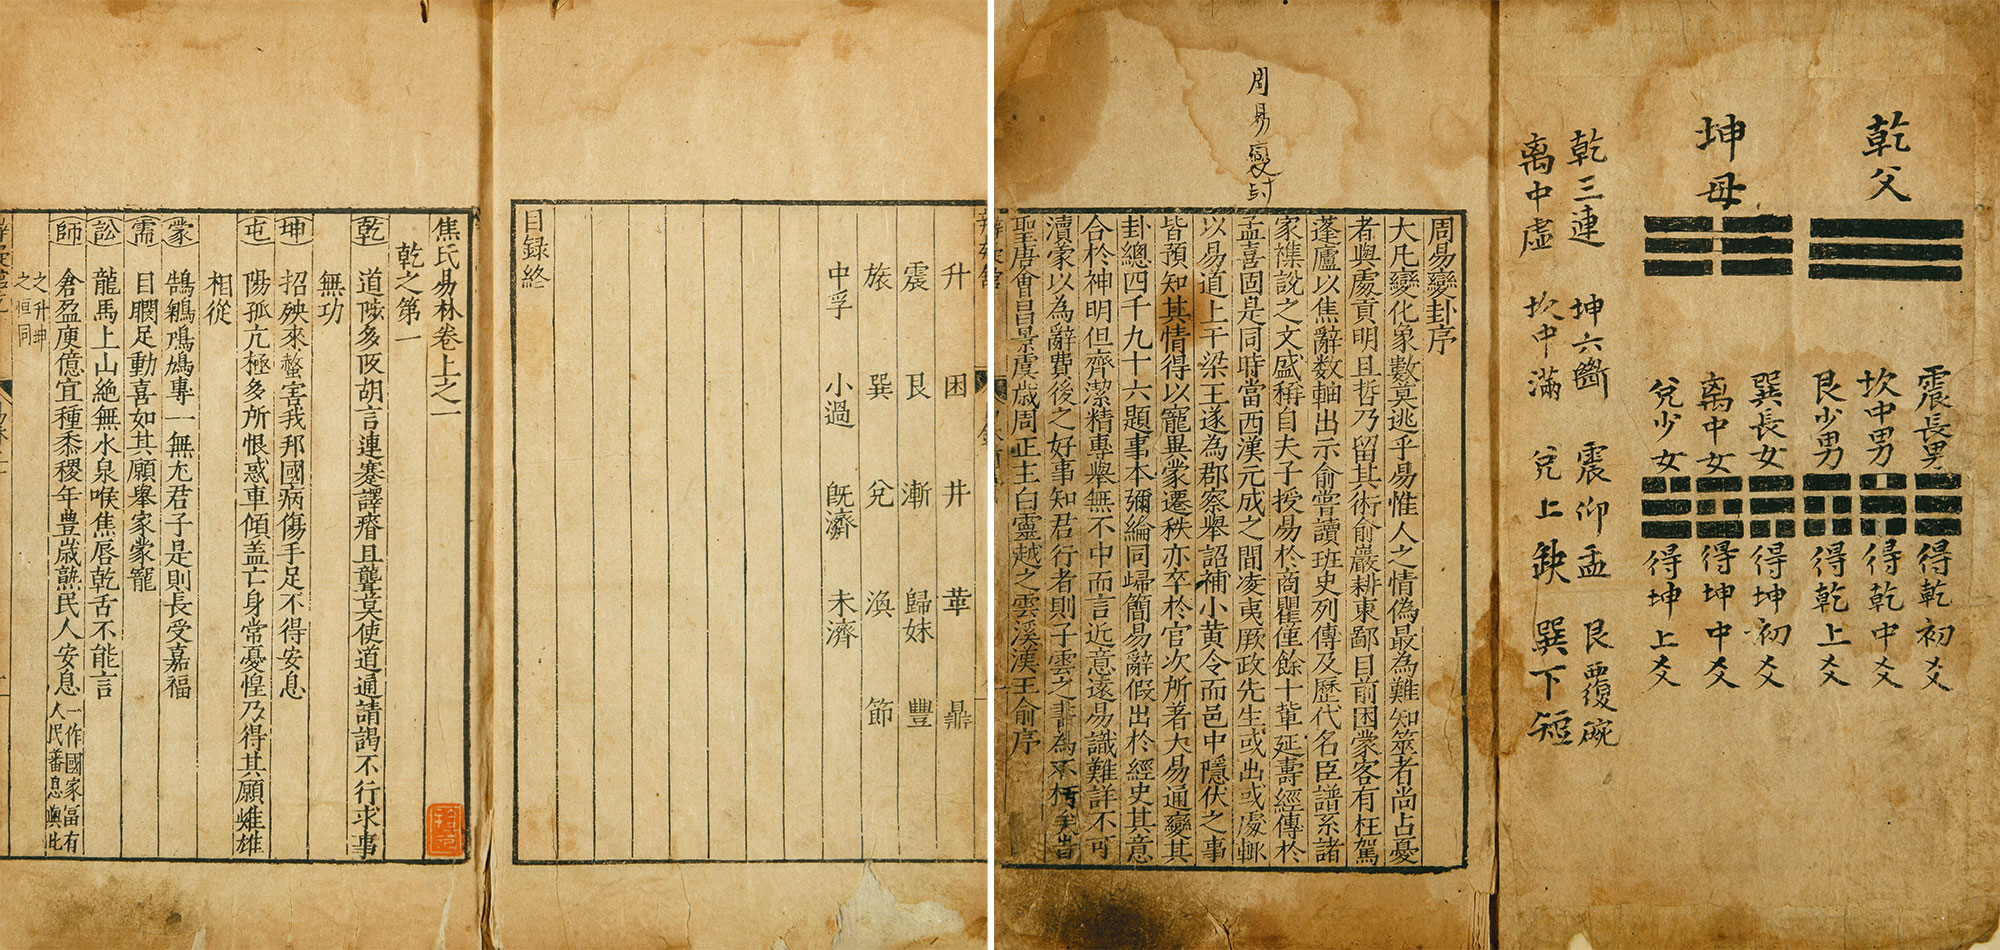 乾父
坤母
震長男
坎中男
艮少男
巽長女
離中女
兌少女
得乾初爻
得乾中爻
得乾上爻
得坤初爻
得坤中爻
得坤上爻
乾三連 坤六斷 震仰盂 艮覆碗
离中虛 坎中滿 兌上缺 巽下短
周易變卦
周易變卦序
大凡變化象數莫逃乎易惟人之情偽最為難知筮者尚占憂
者與處貢明且哲乃留其術俞巖耕東鄙目前困蒙客有枉駕
蓬廬以焦辭数軸出示俞嘗讀班史列傳及歷代名臣譜系諸
家襍說之文盛稱自夫子授易於商瞿僅餘十軰延壽經傳於
孟喜固是同時當西漢元成之間凌夷厥政先生或出或處輒
以易道上干梁王遂為郡察舉詔補小黃令而邑中隱伏之事
皆預知其情得以寵異蒙遷秩亦卒於官次所著大易通變其
卦總四千九十六題事本彌綸同歸簡易辭假出於經史其意
合於神明但齊潔精專舉無不中而言近意遠易識難詳不可
瀆蒙以為辭費後之好事知君行者則子雲之書為不朽矣旹
聖唐會昌景虞歲周正主白靈越之雲溪漢王俞序
升 困 井 革 鼎
震 艮 漸 歸妹 豐
旅 巽 兌 渙 節
中孚 小過 旣濟 未濟
目録終
焦氏易林卷上之一
乾之第一
乾 道陟多阪胡言連蹇譯瘠且聾莫使道通請謁不行求事
無功
坤 招殃來螫害我邦國病傷手足不得安息
屯 陽孤亢極多所恨惑車傾盖亡身常憂惶乃得其願雌雄
相從
蒙 鵠鵴鳲鳩專一無尤君子是則長受嘉福
需 目瞤足動喜如其願舉家蒙寵
訟 龍馬上山絶無水泉喉焦唇乾舌不能言
師 倉盈庾億宜種黍稷年豊歲熟民人安息 一作國家富有
人民蕃息與此
之升坤
之恒同